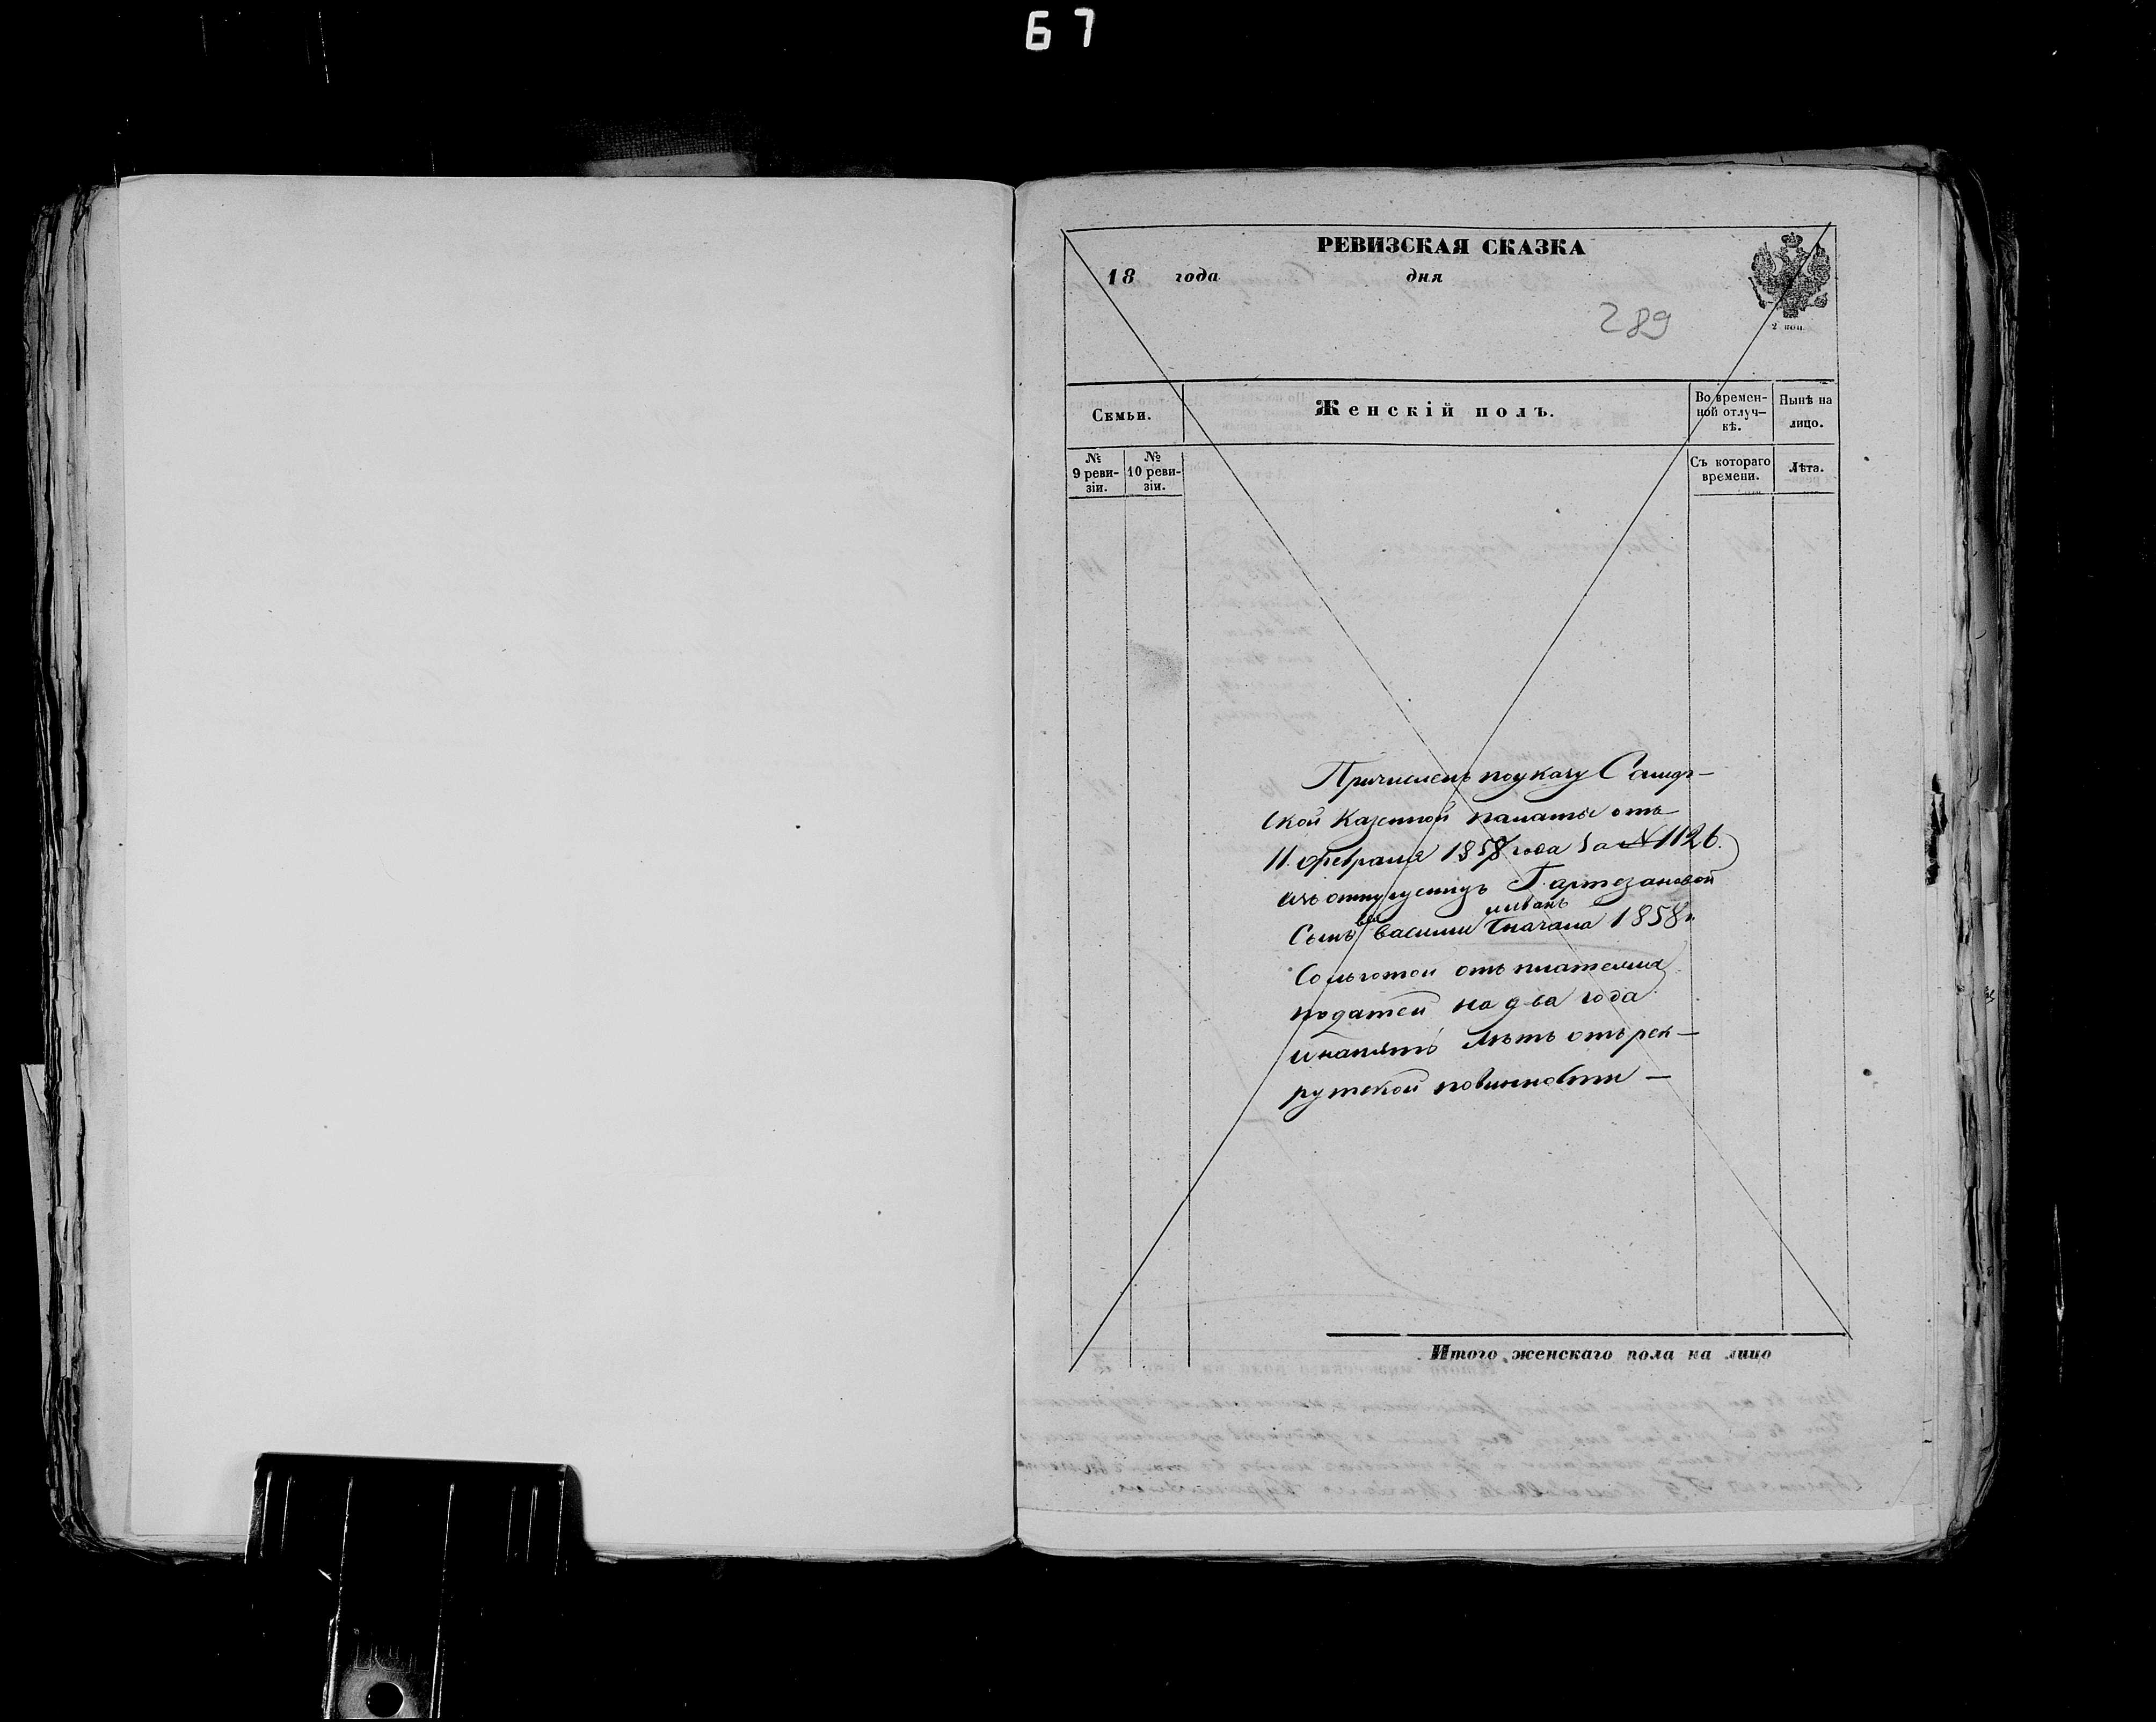 67
РЕВИЗСКАЯ СКАЗКА
18 года дня
289
2 коп.
Семьи.
Женскій полъ.
Во времен-
ной отлуч-
кѣ.
Нынѣ на
лицо.
№
9 реви-
зіи.
№
10 реви-
зіи.
Съ котораго
времени.
Лѣта.
Причислен поуказу
ской Казенной палаты отъ
11. февраля 1858 года за №1126.
изъ
Сынъ Василии Сначала 1858 г
Сольготой отъ платежа
податей на два года
инапять лѣтъ отърек-
рутской повинности —
Итого женскаго пола на лицо